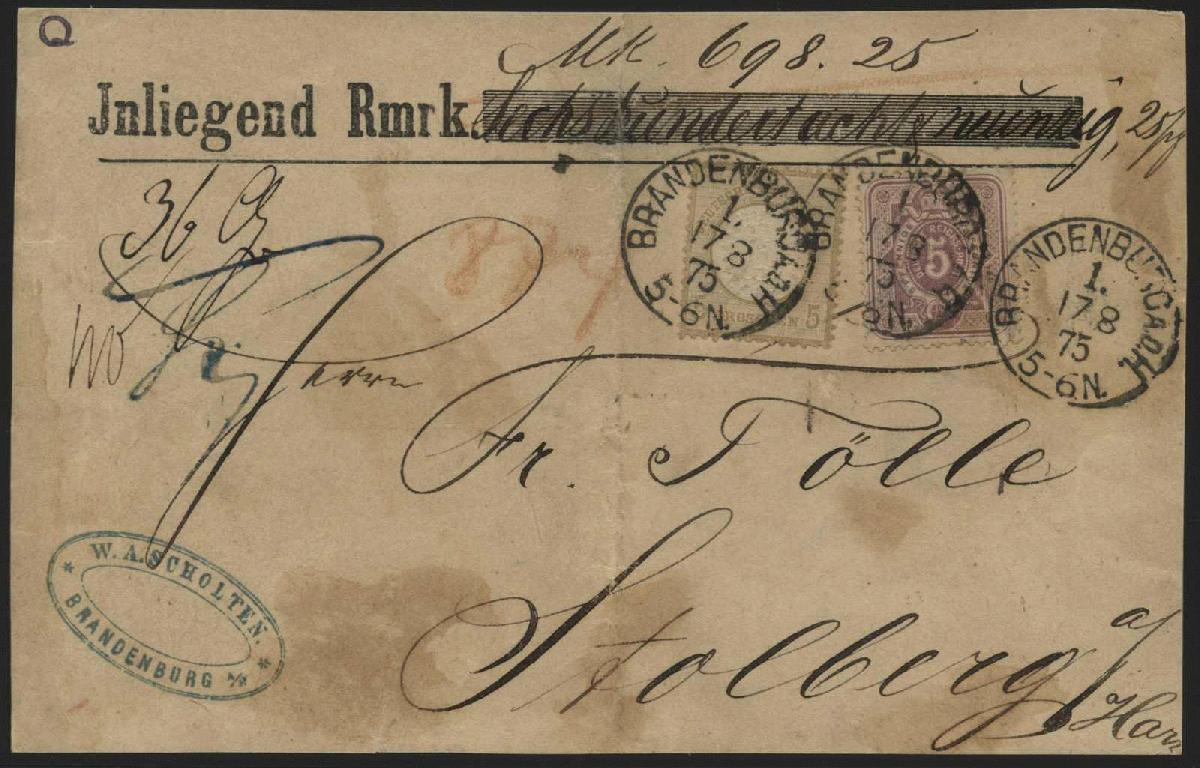 Q
Mk. 698.25
Jnliegend Rmrk. Sechshundertachtzneunzig, 25pf
36
BRANDENBURG A.D.H.
1.
17 8
75
5-6N.
GROSCHEN 5
BRANDENBURG
1
17 8
75
5-6N.
5
BRANDENBURG A.D.H.
1.
17 8
75
5-6N.
Herrn
Fr. Tölle
Stolberg a/
Harz
W. A. SCHOLTEN.
* BRANDENBURG a/H *